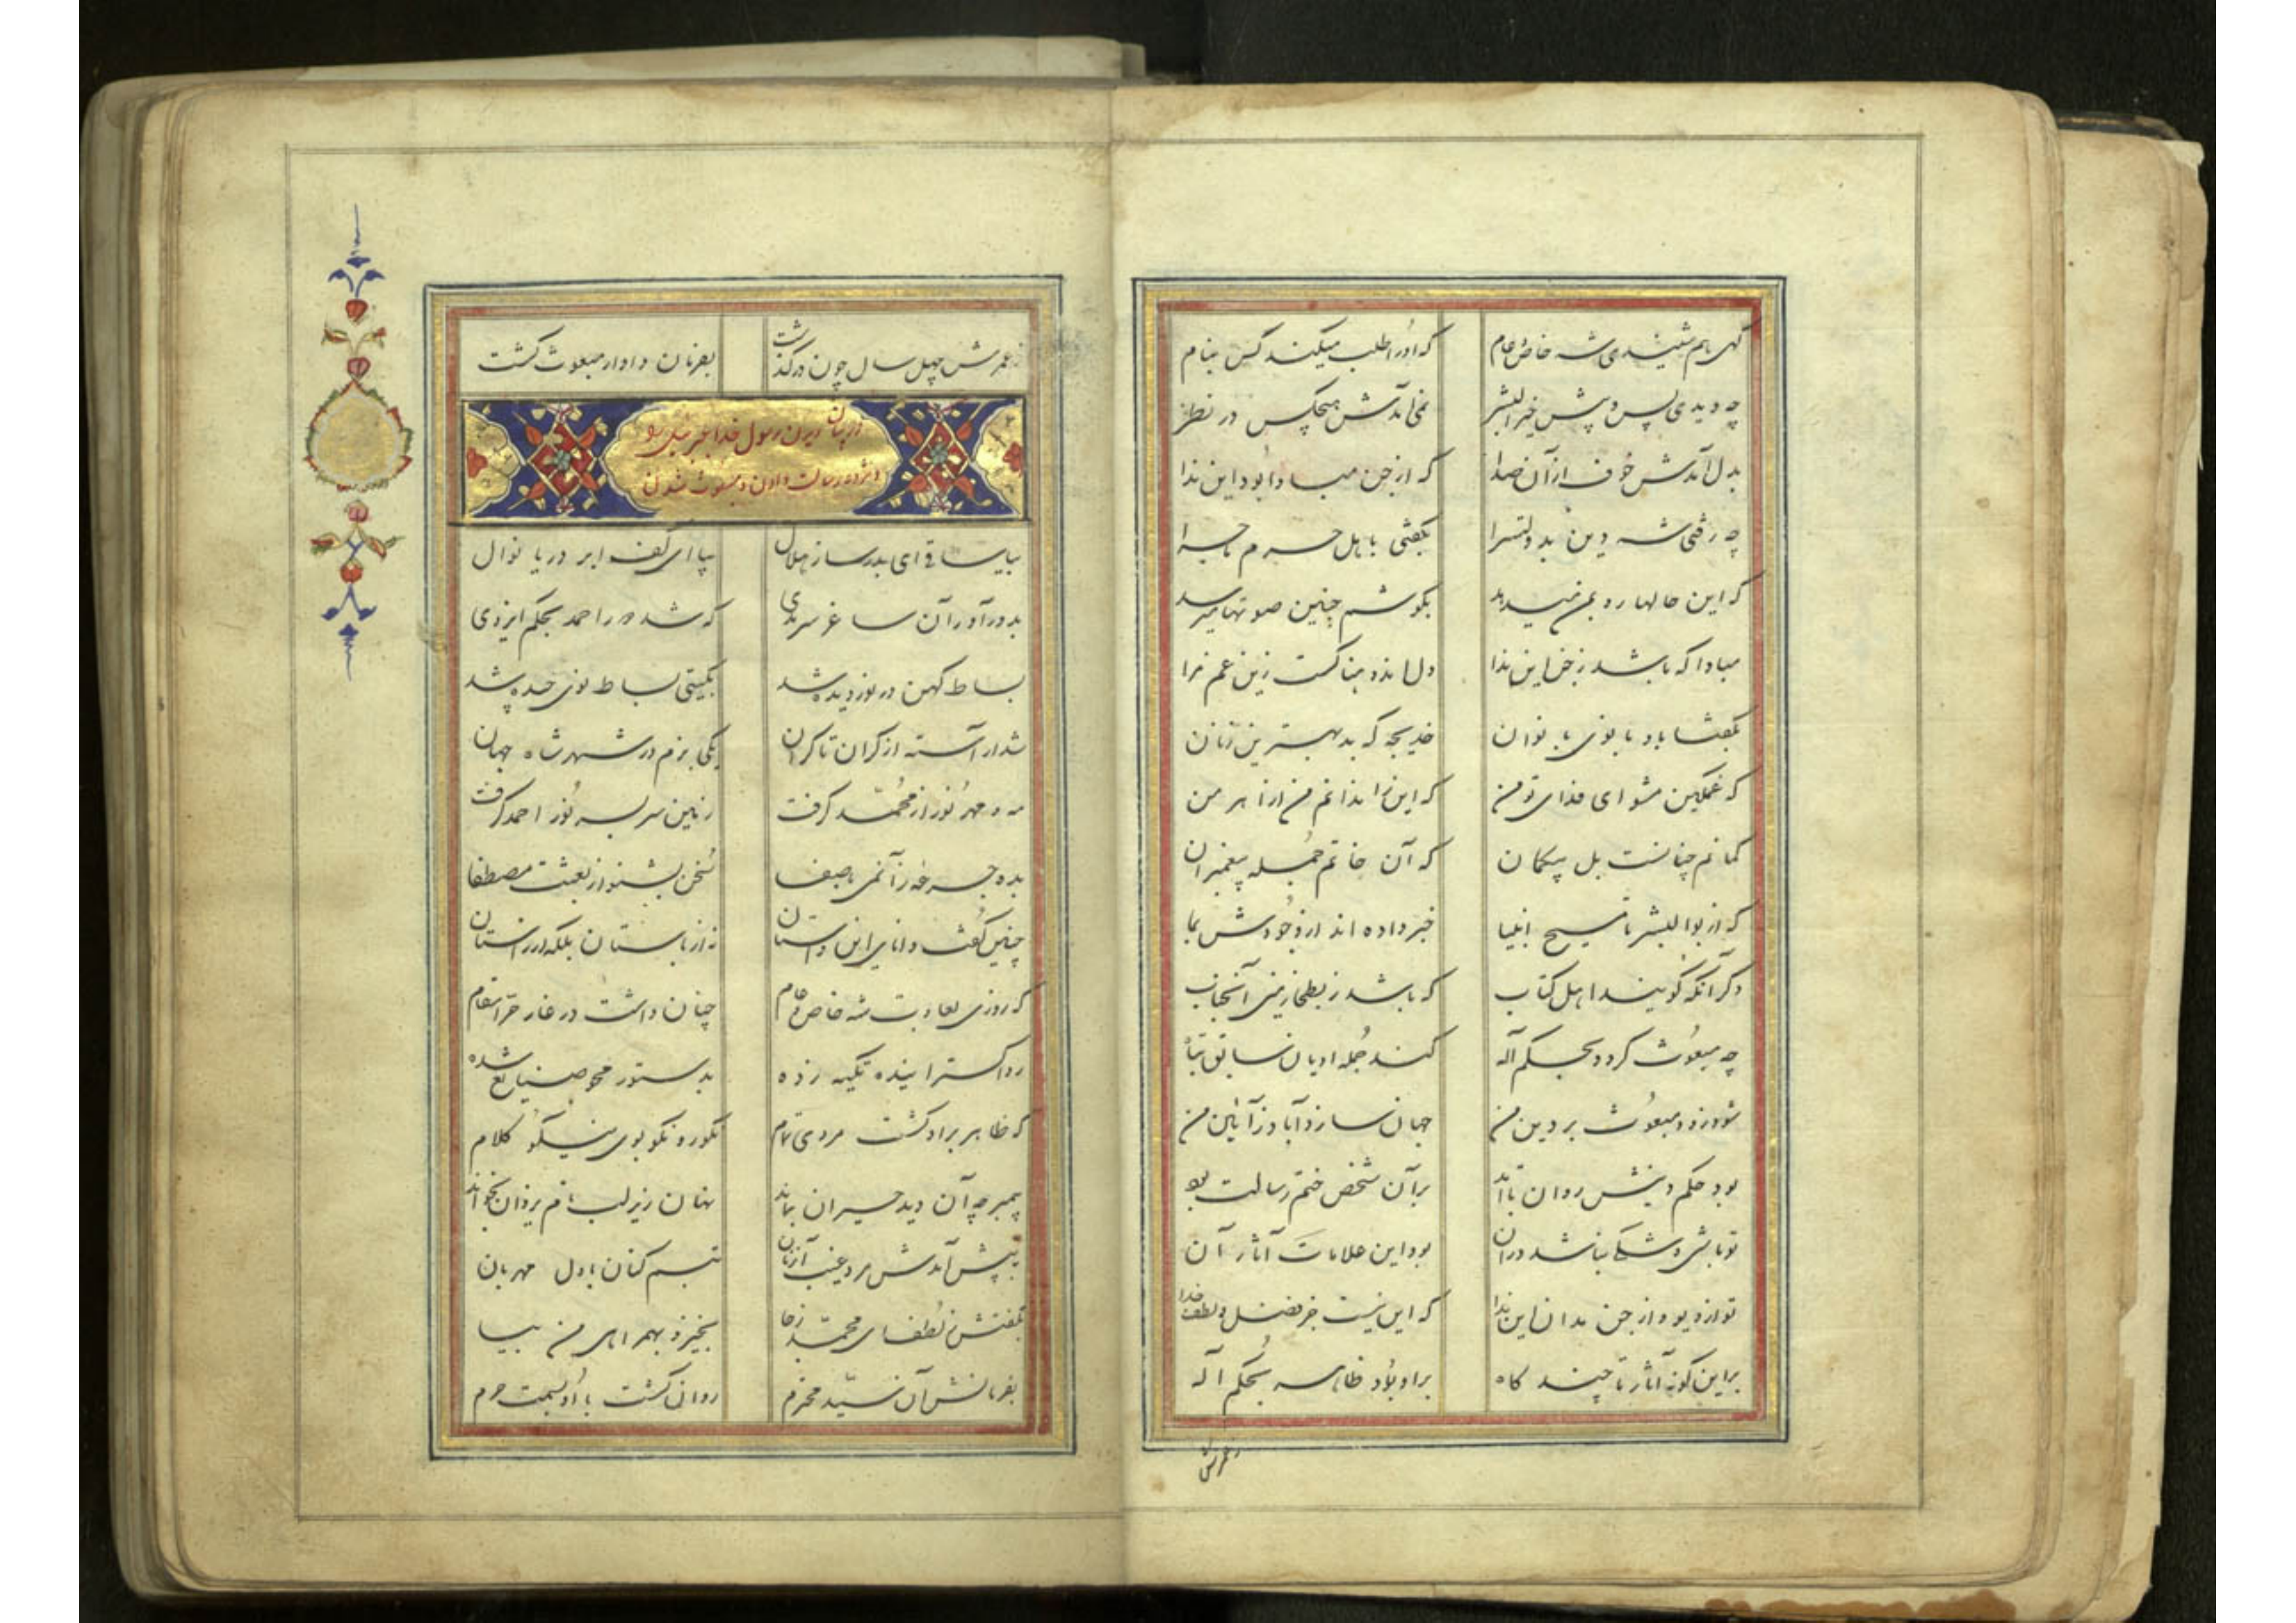 گهی هم شنیدی شه خاص و عام که او را طلب میکند کس بنام
چه دیدی پس و پیش خیر البشر نمی آمدش هیچکس در نظر
بدل آمدش خوف از آن صدا که از جن مبادا بود این ندا
چه رفتی شه دین بدولتسرا بگفتی باهل حرم ماجرا
که این حالها رو بمن میدهد بگوشم چنین صوتها میرسد
مبادا که باشد ز جن این ندا دل اندوهناکست زین غم مرا
بگفتا باو بانوی بانوان خدیجه که بد بهترین زنان
که غمگین مشو ای فدای تو من که این را ندانم من از اهرمن
گمانم چنانست بل بیگمان که آن خاتم جمله پیغمبران
که از بوالبشر تا مسیح انبیا خبر داده اند از وجودش بما
دگر آنکه گویند اهل کتاب که باشد ز بطحا زمین آنجناب
چه مبعوث گردد بحکم آله کند جمله ادیان سابق تباه
شود زود مبعوث بر دین من جهان سازد آباد ز آیین من
بود حکم دینش روان تا ابد بر آن شخص ختم رسالت بود
تو باشی و شکی نباشد در آن بود این علامات آثار آن
تو از دیو و از جن مدان این ندا که این نیست جز فضل و لطف خدا
بر این گونه آثار تا چند گاه بر او بود ظاهر بحکم آله
ز عمرش
ز عمرش چهل سال چون درگذشت بفرمان دادار مبعوث گشت
در بیان دیدن رسول خدا جبرئیل را
و مژده رسالت دادن و مبعوث شدن
بیا ساقی ای بدر ساز هلال بیا ای کف ابر دریا نوال
بدور آور آن ساغر سرمدی که شد دور احمد بحکم ایزدی
بساط کهن در نوردیده شد بگیتی بساط نوی چیده شد
شد آراسته از کران تا کران یکی بزم در شهر شاه جهان
مه و مهر نور از محمد گرفت زمین سر بسر نور احمد گرفت
بده جرعه زآن می با صفا سخن بشنو از بعثت مصطفا
چنین گفت دانای این داستان نه از باستان بلکه از راستان
که روزی بعادت شه خاص و عام چنان داشت در غار حرا مقام
ردا گسترانیده تکیه زده بدستور محو صنایع شده
که ظاهر بر او گشت مردی تمام نکو رو نکو بوی نیکو کلام
پیمبر چه آن دید حیران بماند نهان زیر لب نام یزدان بخواند
به پیش آمدش مرد غیب آن زمان تبسم کنان با دل مهربان
بگفتش ز لطف ای محمد ز جا بخیز و بهمراهی من بیا
بفرمانش آن سید محترم روان گشت با او بسمت حرم